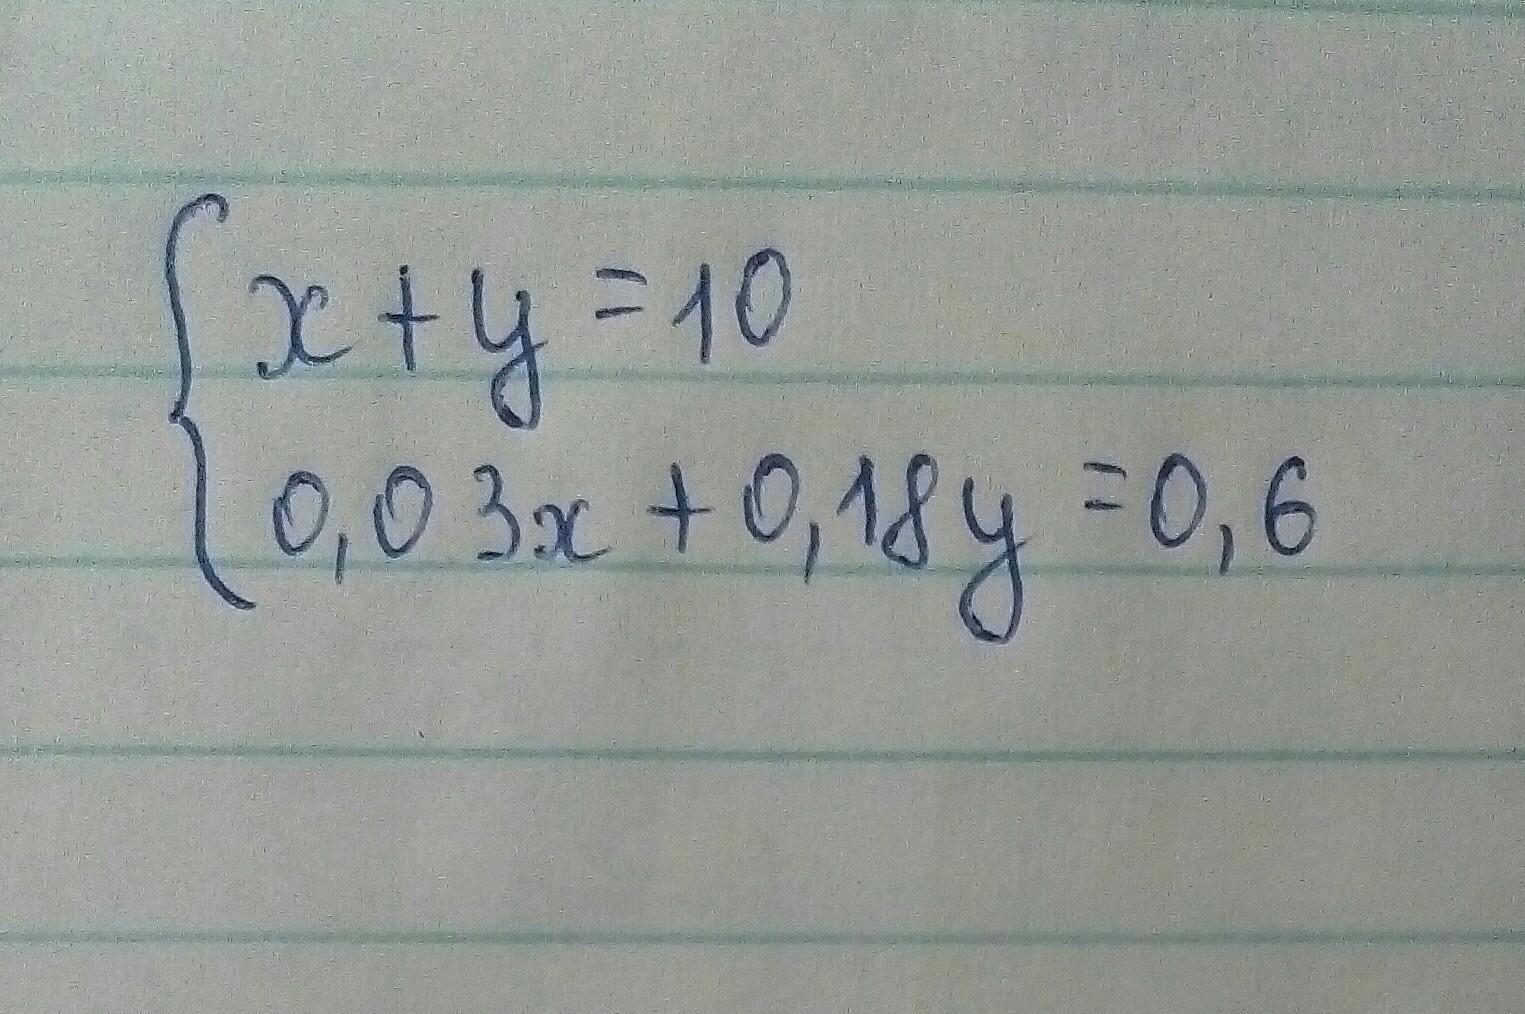 x + y = 10
0,03x + 0,18y = 0,6